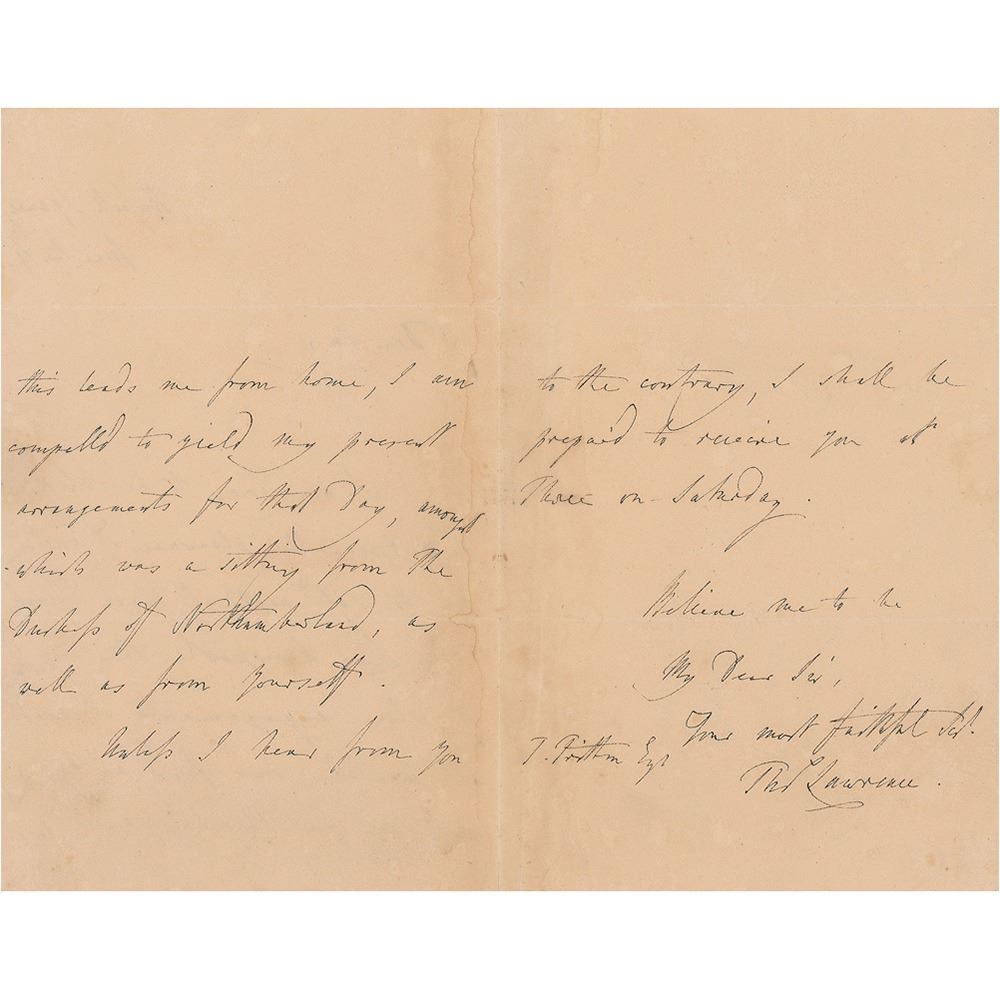 this leads me from home, I am
compelld to yield my present
arrangements for that Day, amongst
which was a sitting from The
Duchess of Northumberland, as
well as from yourself.
Unless I hear from you
to the contrary, I shall be
prepar'd to receive you at
Three on Saturday.
Believe me to be
My Dear Sir,
Your most faithful Sert.
T. Fritton Esqr
Thos Lawrence.